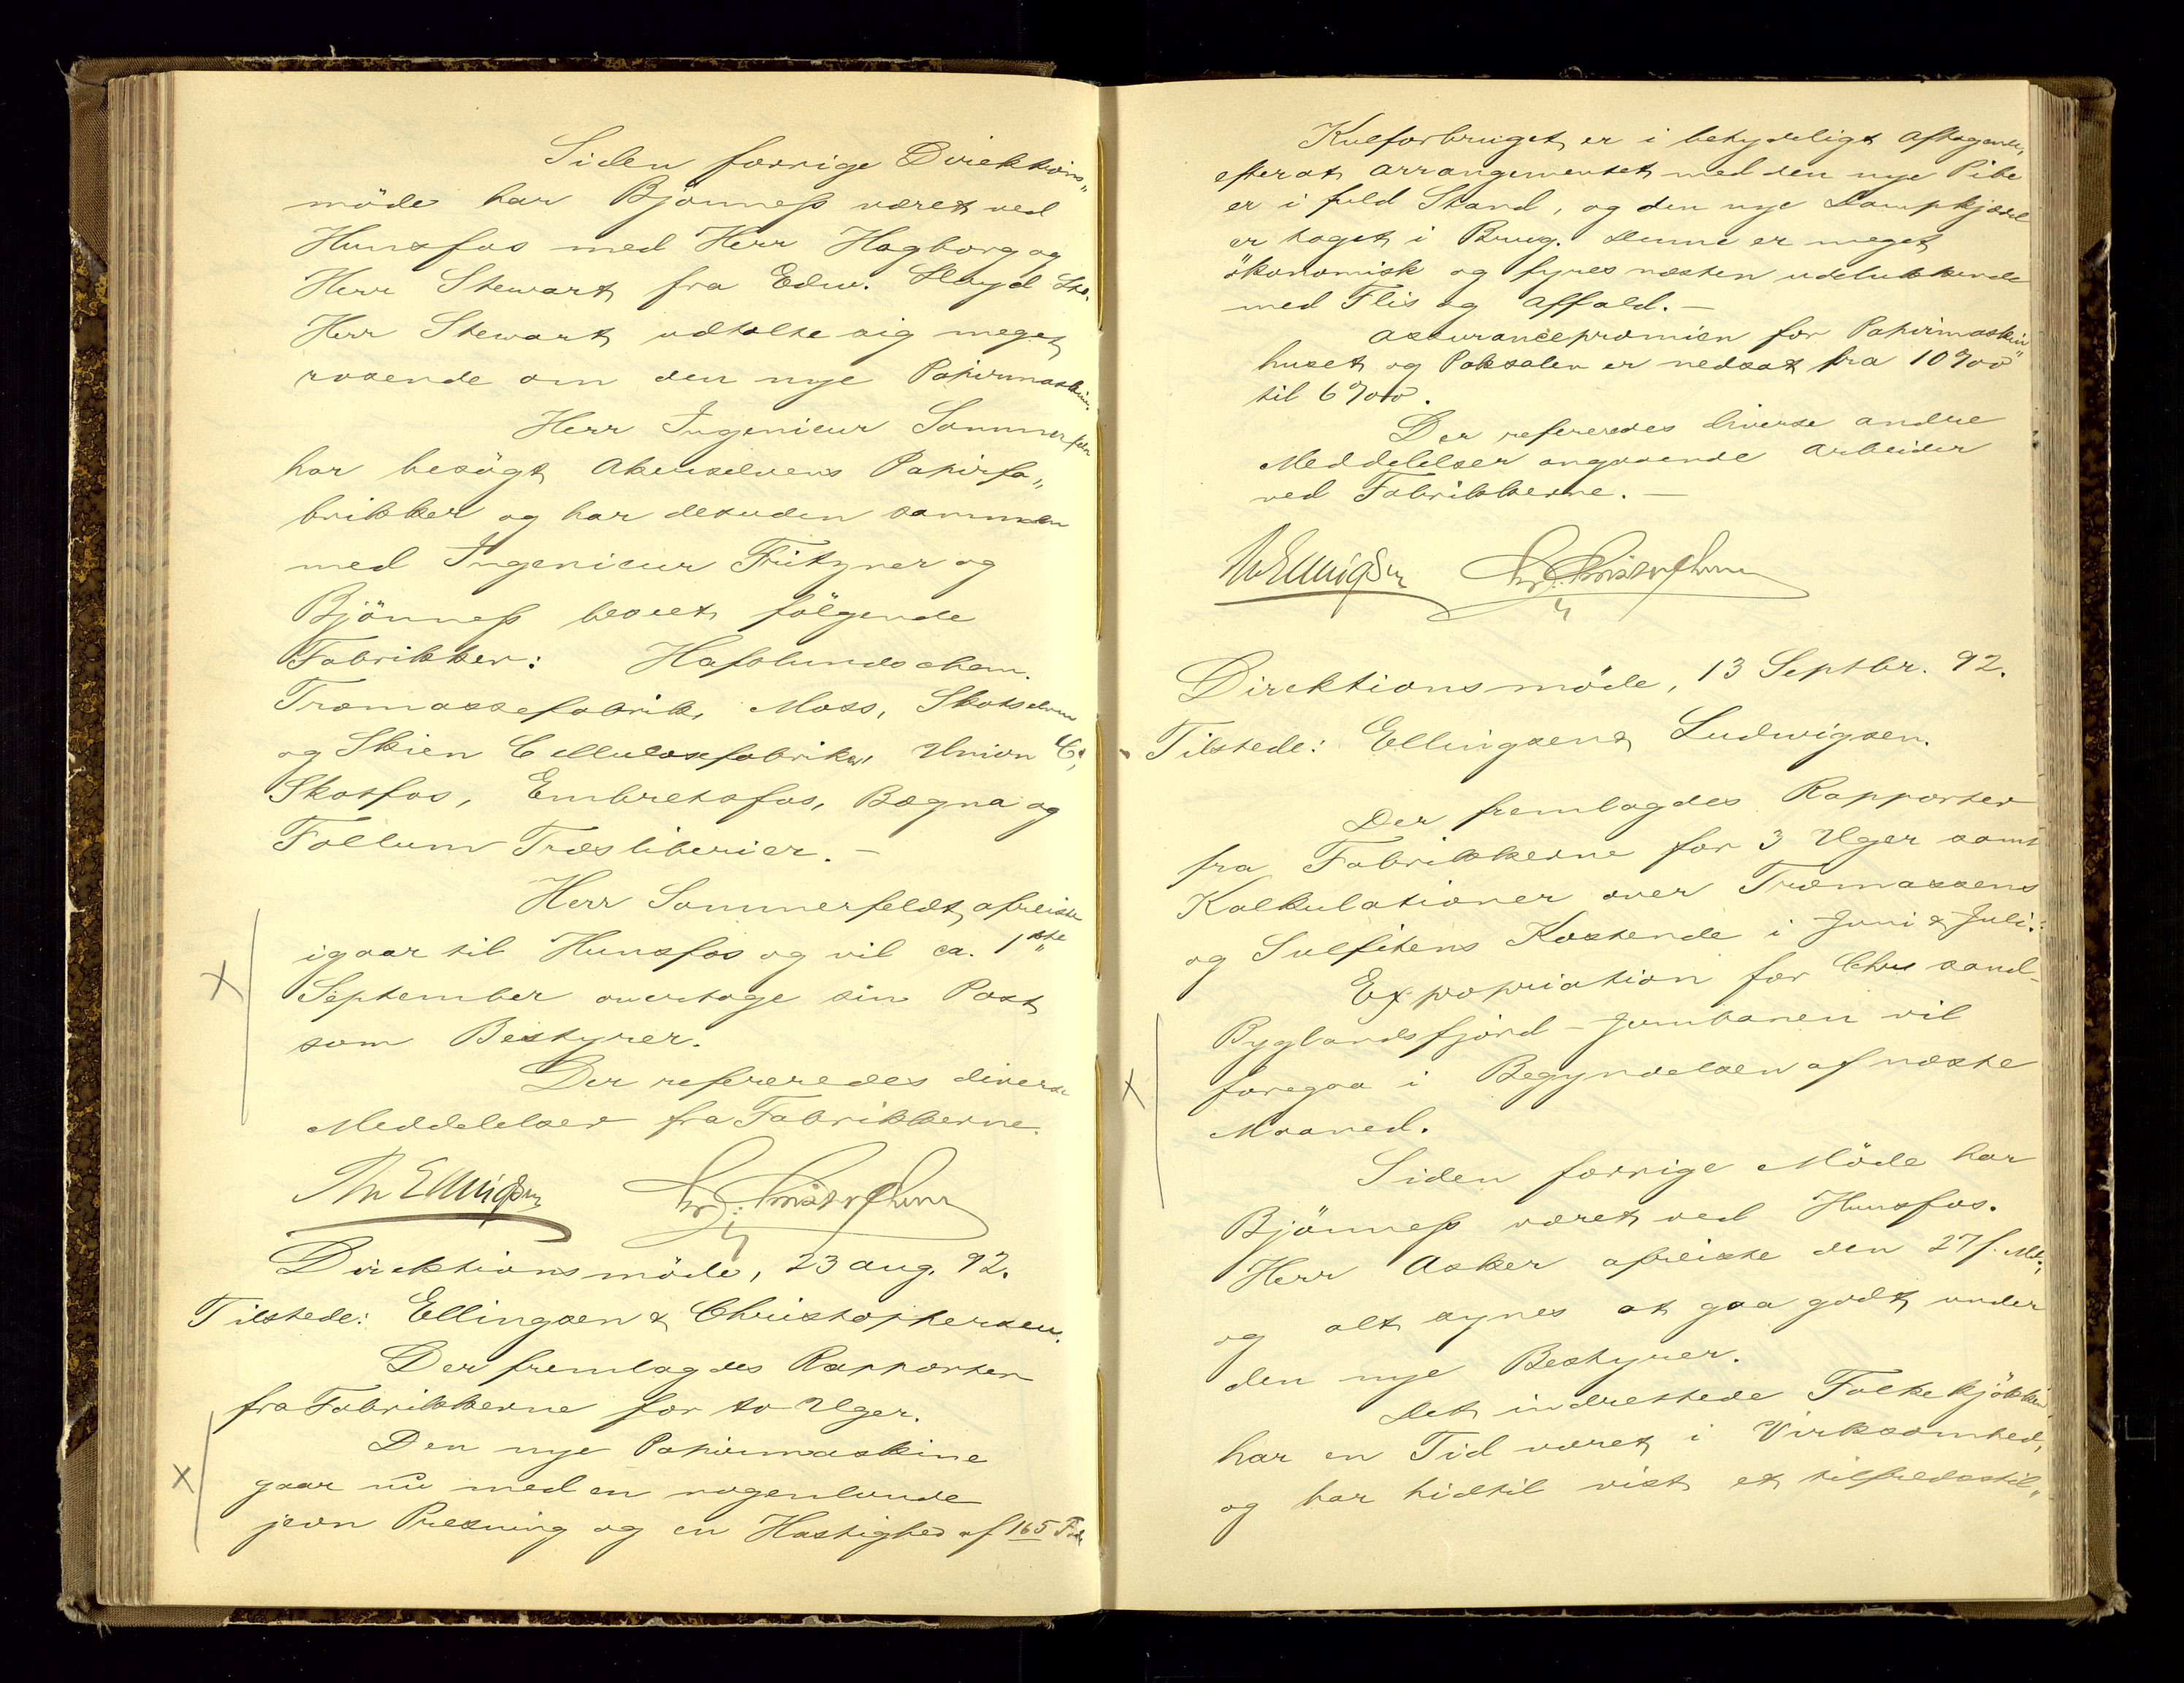 Siden forrige Direktions„
möde har Bjönness været ved
Hunsfos med Herr Hagborg og
Herr Stewart fra Edw. Lloyd Ltd.
Herr Stewart udtalte sig meget
rosende om den nye Papirmaskine.
Herr Ingeniеur Sommerfeldt
har besögt Akerselvens Papirfa„
brikker og har desuden sammen
med Ingenieur Fritzner og
Bjönness beseet fölgende
Fabrikker: Hafslunds chem.
Træmassefabrik, Moss, Skotselvens
og Skien Cellulosefabriker, Union Co,
Skotfos, Embretsfos, Bægna og
Follum Træsliberier. –
Herr Sommerfeldt afreiste
igaar til Hunsfos og vil ca. 1ste
September overtage sin Post
som Bestyrer.
Der refereredes diverse
Meddelelser fra Fabrikkerne.
Th Ellingsen
Direktionsmöde, 23 aug. 92.
Tilstede: Ellingsen & Christophersen.
Der fremlagdes Rapporter
fra Fabrikkerne for to Uger.
Den nye Papirmaskine
gaar nu med en nogenlunde
jevn Presning og en Hastighed af 165 Fod.
Kulforbruget er i betydeligt Aftagende,
efterat arrangementet med den nye Pibe
er i fuld Stand, og den nye Dampkjedel
er taget i Brug. Denne er meget
ökonomisk og fyres næsten udelukkende
med Flis og Affald. –
Assurancepræmien for Papirmaskin„
huset og Paksalen er nedsat fra 10 %00
til 6 %00.
Der refereredes diverse andre
Meddelelser angaaende Arbeider
ved Fabrikkerne. –
Th Ellingsen
Direktionsmöde, 13 Septbr. 92.
Tilstede: Ellingsen & Ludwigsen.
Der fremlagdes Rapporter
fra Fabrikkerne for 3 Uger samt
Kalkulationer over Træmassens
og Sulfitens Kostende i Juni & Juli.
Expropriation for Chrsand-
Byglandsfjord-Jernbanen vil
foregaa i Begyndelsen af næste
Maaned.
Siden forrige Möde har
Bjönness været ved Hunsfos.
Herr Asker afreiste den 27 f. Md.,
og alt synes at gaa godt under
den nye Bestyrer.
Det indrettede Folkekjökken
har en Tid været i Virksomhed,
og har hidtil vist et tilfredsstil„